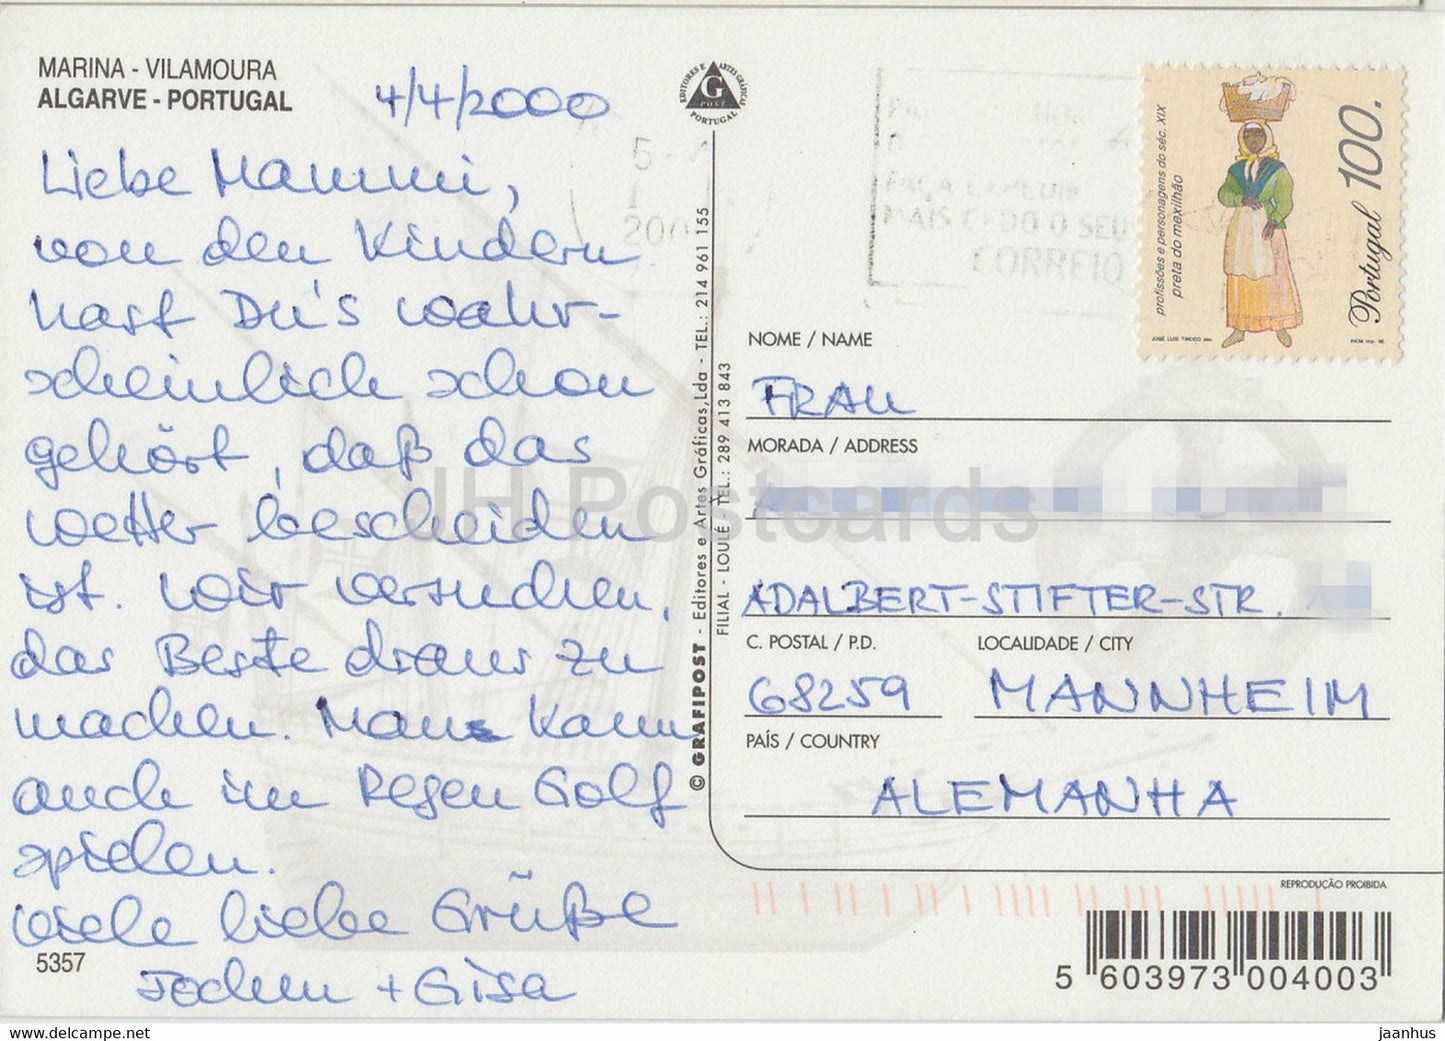 MARINA - VILAMOURA
ALGARVE - PORTUGAL
4/4/2000
Liebe Mammi,
von den Kindern
hast Du's wahr-
scheinlich schon
gehört, daß das
Wetter bescheiden
ist. Wir versuchen,
das Beste draus zu
machen. Man kann
auch im Regen Golf
spielen.
Viele liebe Grüße
Jochen + Gisa
5357
EDITORES E ARTES GRÁFICAS
G
POST
PORTUGAL
© GRAFIPOST - Editores e Artes Gráficas,Lda - TEL.: 214 961 155
FILIAL - LOULÉ TEL.: 289 413 843
5
200
FAÇA EXPEDIR
MAIS CEDO O SEU
CORREIO
profissões e personagens do séc. XIX
preta do mexilhão
Portugal 100.
JOSÉ LUÍS TINOCO des.
INCM imp. 96
NOME / NAME
FRAU
MORADA / ADDRESS
ADALBERT-STIFTER-STR.
C. POSTAL / P.D.
LOCALIDADE / CITY
68259 MANNHEIM
PAÍS / COUNTRY
ALEMANHA
REPRODUÇÃO PROIBIDA
5 603973 004003
JH Postcards
https://www.ebay.com/str/jhpostcardswordwide
jaanhus